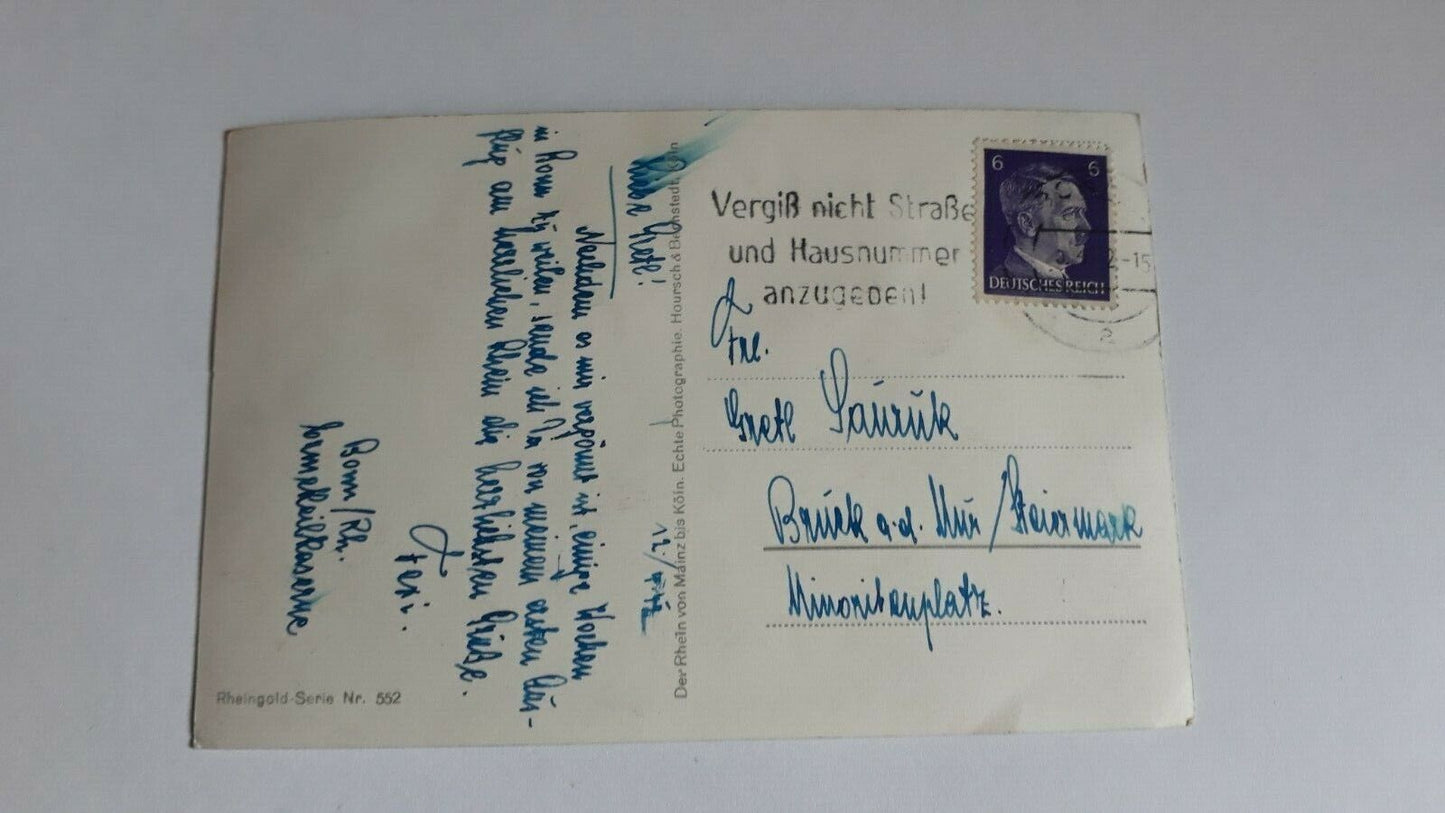 Liebe Gretl!
Nachdem es mir vergönnt ist, einige Wochen
in Bonn zu weilen, sende ich Dir von meinem ersten Aus-
flug am herrlichen Rhein die herzlichsten Grüße.
Ferri.
Bonn/Rh.
Ermekeilkaserne
Rheingold-Serie Nr. 552
Der Rhein von Mainz bis Köln. Echte Photographie. Hoursch & Bechstedt, Köln
Vergiß nicht Straße
und Hausnummer
anzugeben!
6 6
DEUTSCHES REICH
-15
Frl.
Gretl Sauruk
Bruck a.d. Mur/Steiermark
Minoritenplatz.